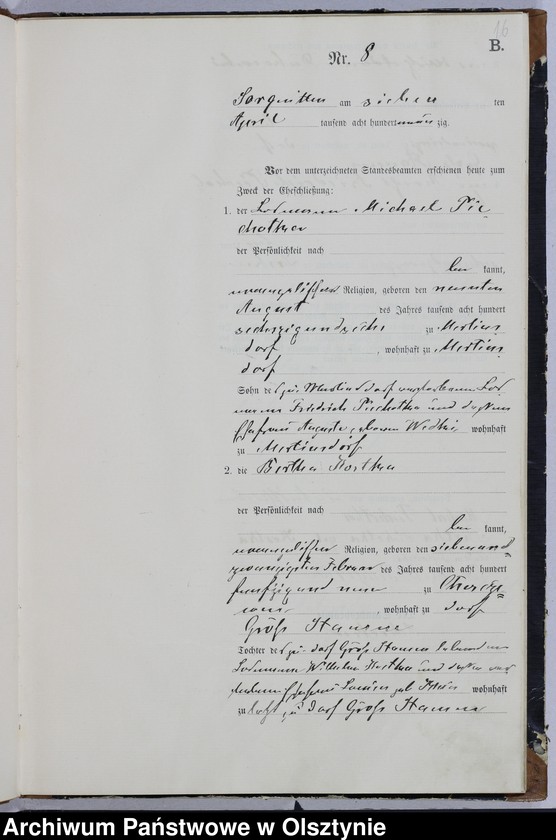 16
B.
Nr. 8
Sorquitten am sieben ten
April tausend acht hundert neun zig.
Vor dem unterzeichneten Standesbeamten erschienen heute zum
Zweck der Eheschließung:
1. der Losmann Michael Pie
chottka
der Persönlichkeit nach
be kannt,
evangelischer Religion, geboren den neunten
August des Jahres tausend acht hundert
sechszigundsechs zu Mertins
dorf, wohnhaft zu Mertins
dorf
Sohn des zu Mertinsdorf verstorbenen Los
manns Friedrich Piechottka und dessen
Ehefrau Auguste, geborenen wohnhaft
zu Mertinsdorf
2. die Bertha Kostka
der Persönlichkeit nach
be kannt,
evangelischer Religion, geboren den siebenund
zwanzigsten Februar des Jahres tausend acht hundert
fünfzig und neun zu
, wohnhaft zu dorf
Groß Stamm
Tochter des zu dorf Groß Stamm lebenden
Losmanns Wilhelm Kostka und dessen ver
storbenen Ehefrau Louise geb wohnhaft
zu letzt zu dorf Groß Stamm
Archiwum Państwowe w Olsztynie